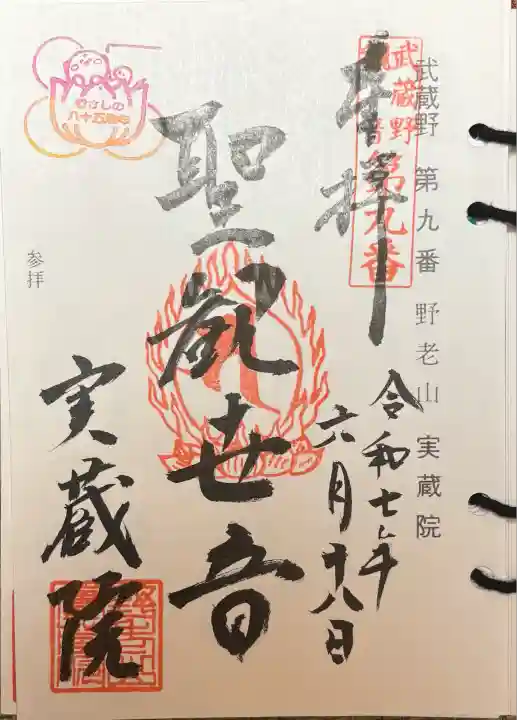 武蔵野 第九番 野老山 実蔵院
武蔵野
第九番
奉拝
令和七年
六月十八日
聖観世音
実蔵院
参拝
むさしの
八十五周年